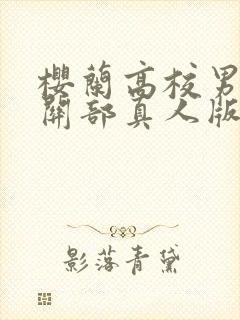 櫻蘭高校男
關部真人版
影落青黛